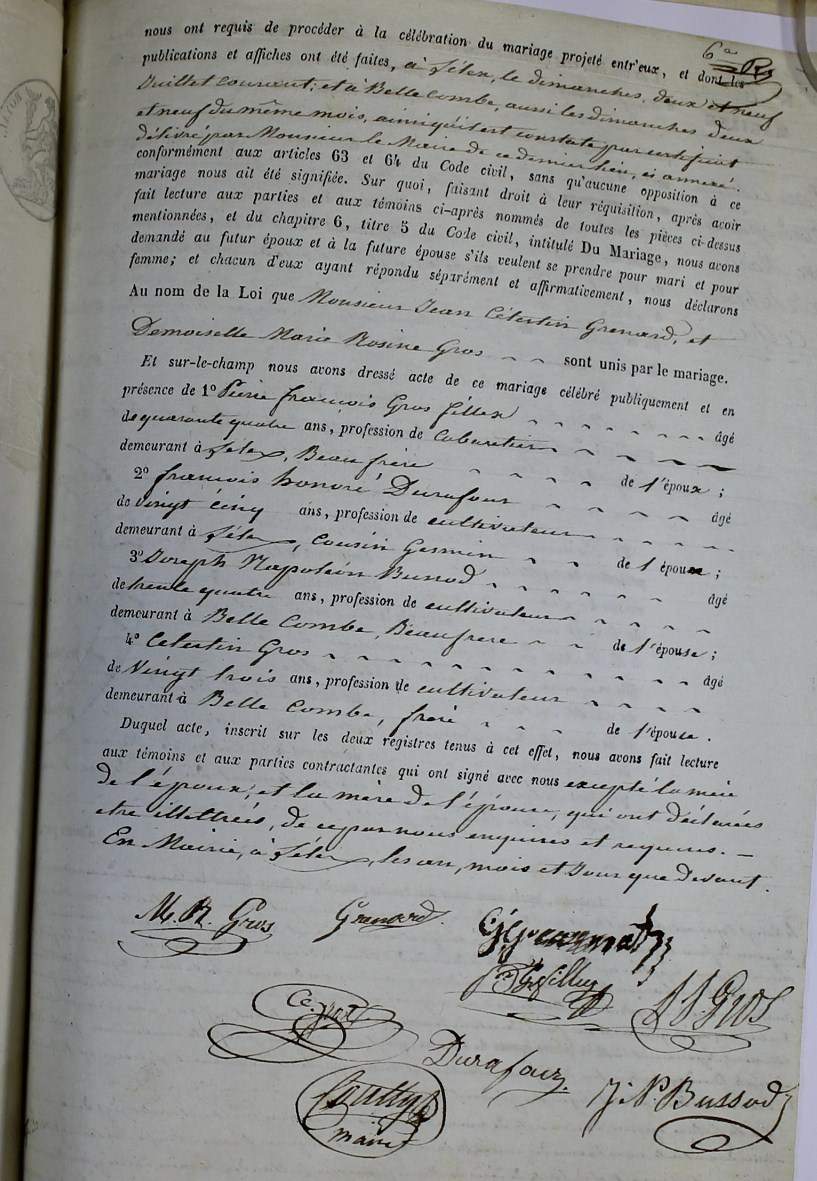 6e
nous ont requis de procéder à la célébration du mariage projeté entr'eux, et dont les
publications et affiches ont été faites, à fétex, le dimanches, deux et neuf
Juillet courant; et à Belle combe, aussi les dimanches deux
et neuf du même mois, ainsi qu'il est constaté par certificat
délivré par Monsieur le Maire de ce dernier lieu, ci annexé.
conformément aux articles 63 et 64 du Code civil, sans qu'aucune opposition à ce
mariage nous ait été signifiée. Sur quoi, faisant droit à leur réquisition, après avoir
fait lecture aux parties et aux témoins ci-après nommés de toutes les pièces ci-dessus
mentionnées, et du chapitre 6, titre 5 du Code civil, intitulé Du Mariage, nous avons
demandé au futur époux et à la future épouse s'ils veulent se prendre pour mari et pour
femme; et chacun d'eux ayant répondu séparément et affirmativement, nous déclarons
Au nom de la Loi que Monsieur Jean Célestin Grenard, et
Demoiselle Marie Rosine Gros sont unis par le mariage.
Et sur-le-champ nous avons dressé acte de ce mariage célébré publiquement et en
présence de 1° Pierre françois Gros fillex âgé
de quarante quatre ans, profession de Cabaretier
demeurant à fétex, Beaufrère de l'époux;
2° françois honoré Durafour âgé
de vingt cinq ans, profession de cultivateur
demeurant à fétex, Cousin Germin de l'époux;
3° Joseph Napoléon Bussod âgé
de trente quatre ans, profession de cultivateur
demeurant à Belle Combe, Beaufrere de l'épouse;
4° Célestin Gros âgé
de Vingt trois ans, profession de cultivateur
demeurant à Belle Combe, frère de l'épouse.
Duquel acte, inscrit sur les deux registres tenus à cet effet, nous avons fait lecture
aux témoins et aux parties contractantes qui ont signé avec nous excepté la mère
de l'époux, et la mère de l'épouse, qui ont déclarées
etre illettrées, de ce par nous enquises et requises. —
En Mairie, à fétex, les an, mois et Jour que devant.
M. R. Gros Grenard
J J Gros
Durafour
J. N. Bussod
maire